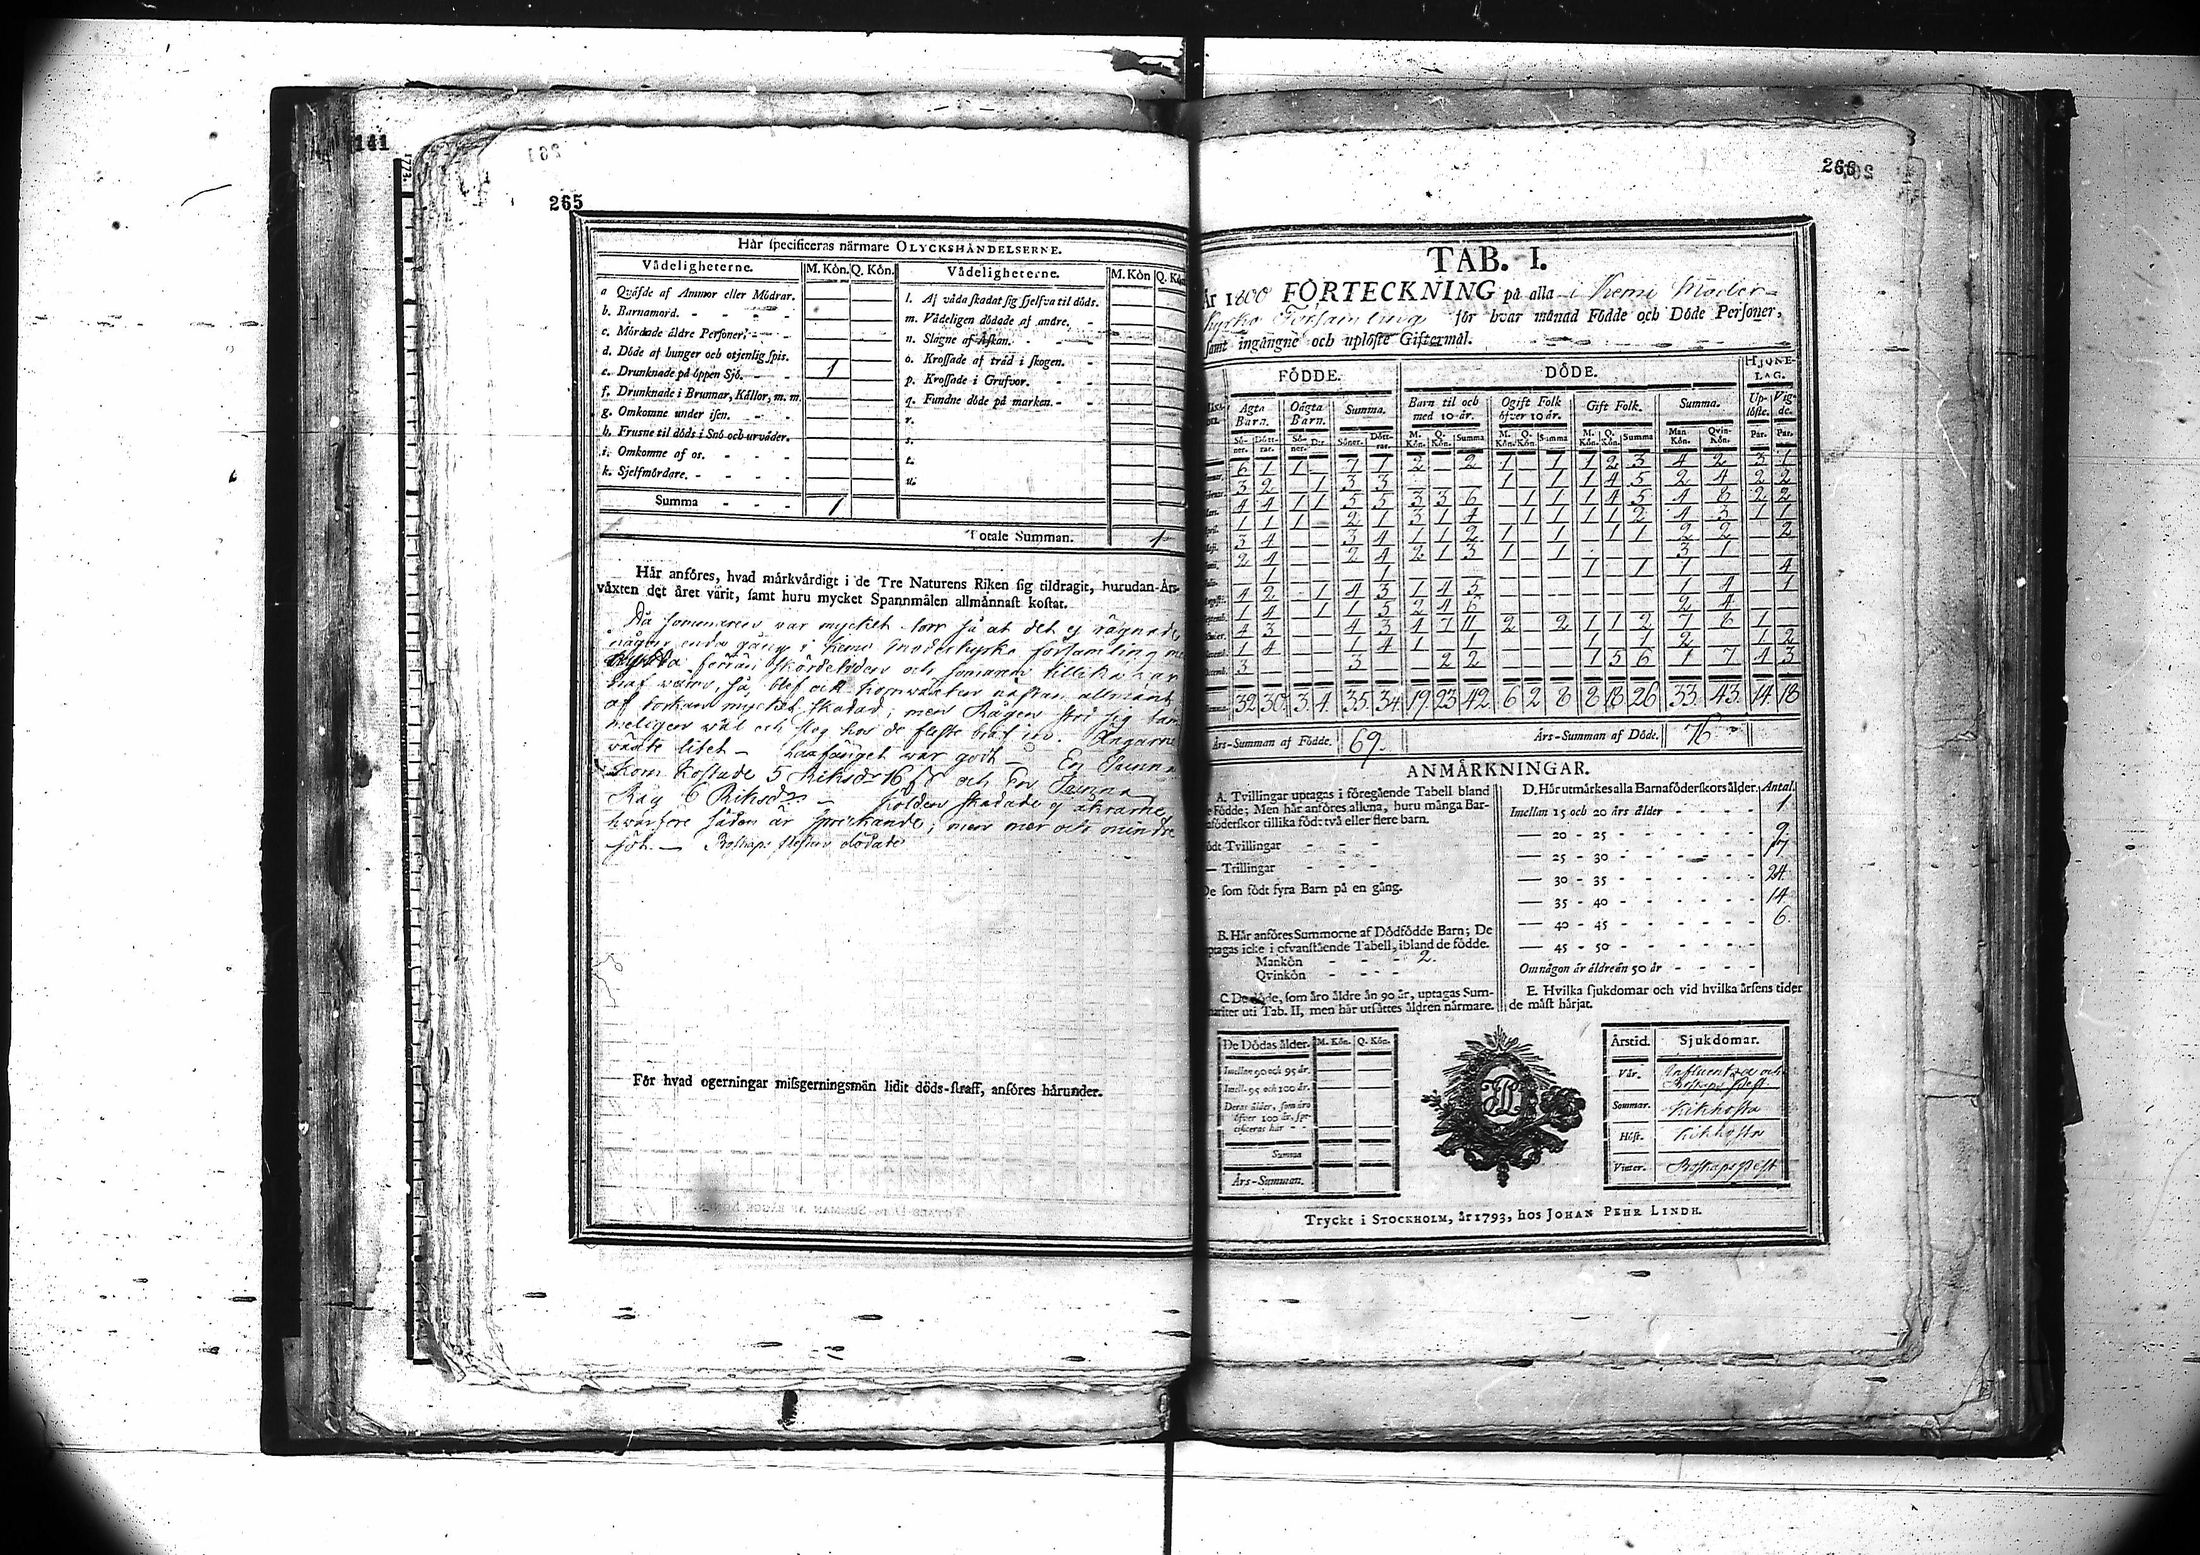 141
265
Hår specificeras närmare OLYCKSHÄNDELSERNE.
Vådeligheterne. M. Kön. Q. Kön. Vådeligheterne. M. Kön Q. Kön
a Qväfde af Ammor eller Mödrar.
b. Barnamord.
c. Mördade äldre Personer.
d. Döde af hunger och otjenlig spis.
e. Drunknade på öppen Sjö. 1
f. Drunknade i Brunnar, Källor, m. m.
g. Omkomne under isen.
h. Frusne til döds i Snö och urväder.
i. Omkomne af os.
k. Sjelfmördare.
Summa 1
l. Af våda skadat sig sjelfva til döds.
m. Vådeligen dödade af andre.
n. Slagne af Åskan.
o. Krossade af träd i skogen.
p. Krossade i Grufvor.
q. Fundne döde på marken.
r.
s.
t.
u.
Totale Summan. 1
Hår anföres, hvad märkvärdigt i de Tre Naturens Riken sig tildragit, hurudan Års-
växten det året varit, samt huru mycket Spannmålen allmännast kostat.
Då sommaren var mycket torr så at det ej rägnade
någon enda gång i Kemi Moderkyrko församling
förrän skördetiden och sommaren tillika
varm, så blef ock kornväxten nästan allmänt
af torkan mycket skadad; men Rågen
väl och slog hos de fleste Ängarne
växte litet – Laxfånget war godt – En Tunna
Korn kostade 5 Riksdr 16 och En Tunna
Råg 6 Riksdr – Kölden skadade ej åkrarne
hwarföre säden är; men mer och mindre
Boskaps dödade
För hvad ogerningar missgerningsmän lidit döds-straff, anföres hårunder.
266
TAB. I.
År 1800 FÖRTECKNING på alla i Kemi Moder-
kyrko Församling för hvar månad Födde och Döde Personer,
samt ingångne och uplöste Giftermål.
FÖDDE. DÖDE. HJONE-LAG.
Ägta Barn. Oägta Barn. Summa. Barn til och med 10 år. Ogift Folk öfver 10 år. Gift Folk. Summa. Up-löste. Vig-de.
Sö-ner. Dött-rar. Sö-ner. Dr. Söner. Dött-rar. M. Kön. Q. Kön. Summa M. Kön. Q. Kön. Summa M. Kön. Q. Kön. Summa Man Kön. Qvin-Kön. Par. Par.
6 1 1 – 7 1 2 – 2 1 – 1 1 2 3 4 2 3 1
3 2 – 1 3 3 – – – 1 – 1 1 4 5 2 4 2 2
4 4 1 1 5 5 3 3 6 – 1 1 1 4 5 4 8 2 2
1 1 1 – 2 1 3 1 4 – 1 1 1 1 2 4 3 1 1
3 4 – – 3 4 1 1 2 1 – 1 – 1 1 2 2 – 2
2 4 – – 2 4 2 1 3 1 – 1 – – – 3 1
– 1 – – – 1 – – – – – – 1 – 1 1 – – 4
4 2 – 1 4 3 1 4 5 – – – – – – 1 4 – 1
1 4 – 1 1 5 2 4 6 – – – – – – 2 4
4 3 – – 4 3 4 7 11 2 – 2 1 1 2 7 8 1
1 4 – – 1 4 1 – 1 – – – 1 – 1 2 – 1 2
3 – – – 3 – – 2 2 – – – 1 5 6 1 7 4 3
32 30 3 4 35 34 19 23 42 6 2 8 8 18 26 33 43 14 18
Års-Summan af Födde. 69. Års-Summan af Döde. 76
ANMÄRKNINGAR.
A. Tvillingar uptagas i föregående Tabell bland
de Födde; Men här anföres allena, huru många Bar-
naföderskor tillika födt två eller flere barn.
Födt Tvillingar
— Trillingar
De som födt fyra Barn på en gång.
B. Hår anföres Summorne af Dödfödde Barn; De
uptagas icke i ofvanstående Tabell, ibland de födde.
Mankön 2.
Qvinkön
C. De döde, som äro äldre än 90 år, uptagas Sum-
mariter uti Tab. II, men här utsättes åldren närmare.
De Dödas ålder. M. Kön. Q. Kön.
Imellan 90 och 95 år.
Imell. 95 och 100 år.
Deras ålder, som äro
öfver 100 år, spe-
cificeras här
Summa
Års-Summan.
D. Här utmärkes alla Barnaföderskors ålder. Antal.
Imellan 15 och 20 års ålder 1
— 20 - 25 9
— 25 - 30 17
— 30 - 35 24
— 35 - 40 14
— 40 - 45 6.
— 45 - 50
Om någon är äldre än 50 år
E. Hvilka sjukdomar och vid hvilka årsens tider
de mäst härjat.
Årstid. Sjukdomar.
Vår. Influentza och
Boskaps Pest.
Sommar. Kikhosta
Höst. Kikhosta
Vinter. Boskaps Pest
Tryckt i STOCKHOLM, år 1793, hos JOHAN PEHR LINDH.